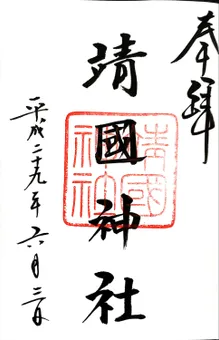 奉拝
靖國神社
靖國神社
平成二十九年六月三日